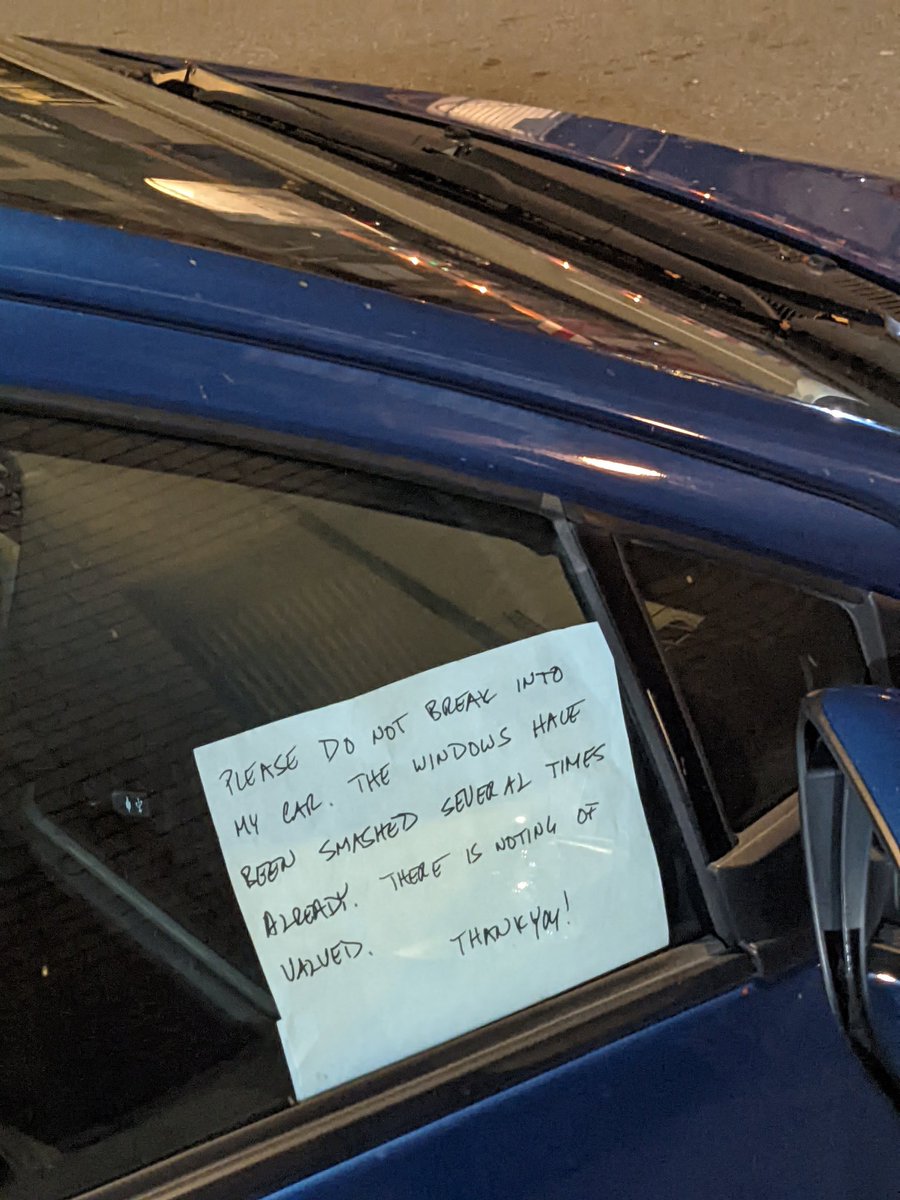 PLEASE DO NOT BREAK INTO
MY CAR. THE WINDOWS HAVE
BEEN SMASHED SEVERAL TIMES
ALREADY. THERE IS NOTING OF
VALUED. THANK YOU!